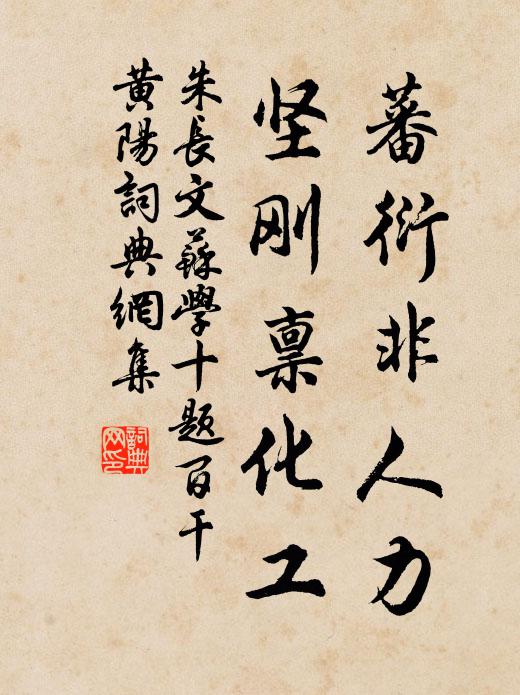 蕃衍非人力
坚刚禀化工
朱長文蘇學十題百干
黃陽詞典網集
詞典网印